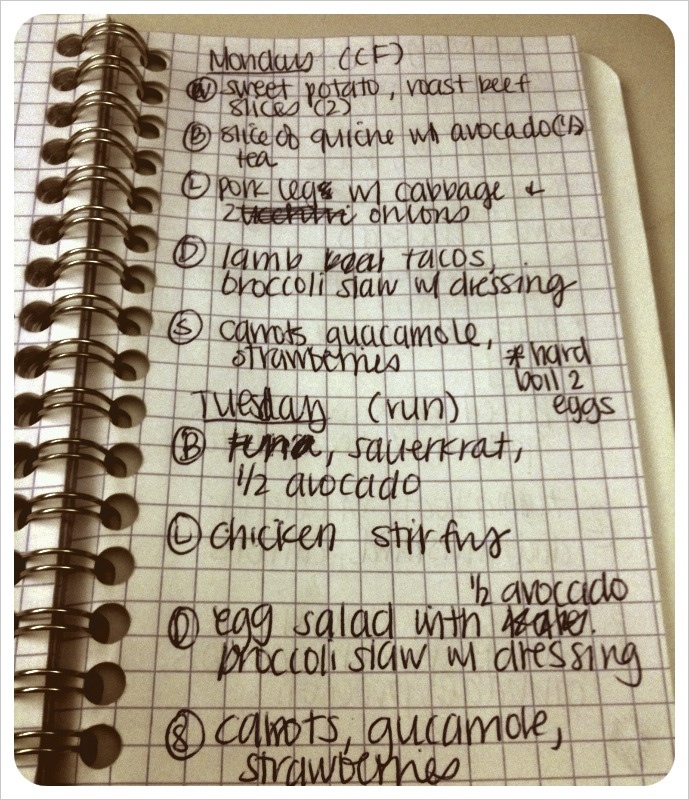 Monday (CF)
Ⓦ sweet potato, roast beef
slices (2)
Ⓑ slice of quiche w/ avocado
tea
Ⓛ pork legs w/ cabbage +
2 onions
Ⓓ lamb tacos,
broccoli slaw w/ dressing
Ⓢ carrots guacamole,
strawberries
* hard
boil 2
eggs
Tuesday (run)
Ⓑ tuna, sauerkrat,
1/2 avocado
Ⓛ chicken stir fry
1/2 avocado
Ⓓ egg salad with
broccoli slaw w/ dressing
Ⓢ carrots, gucamole,
strawberries